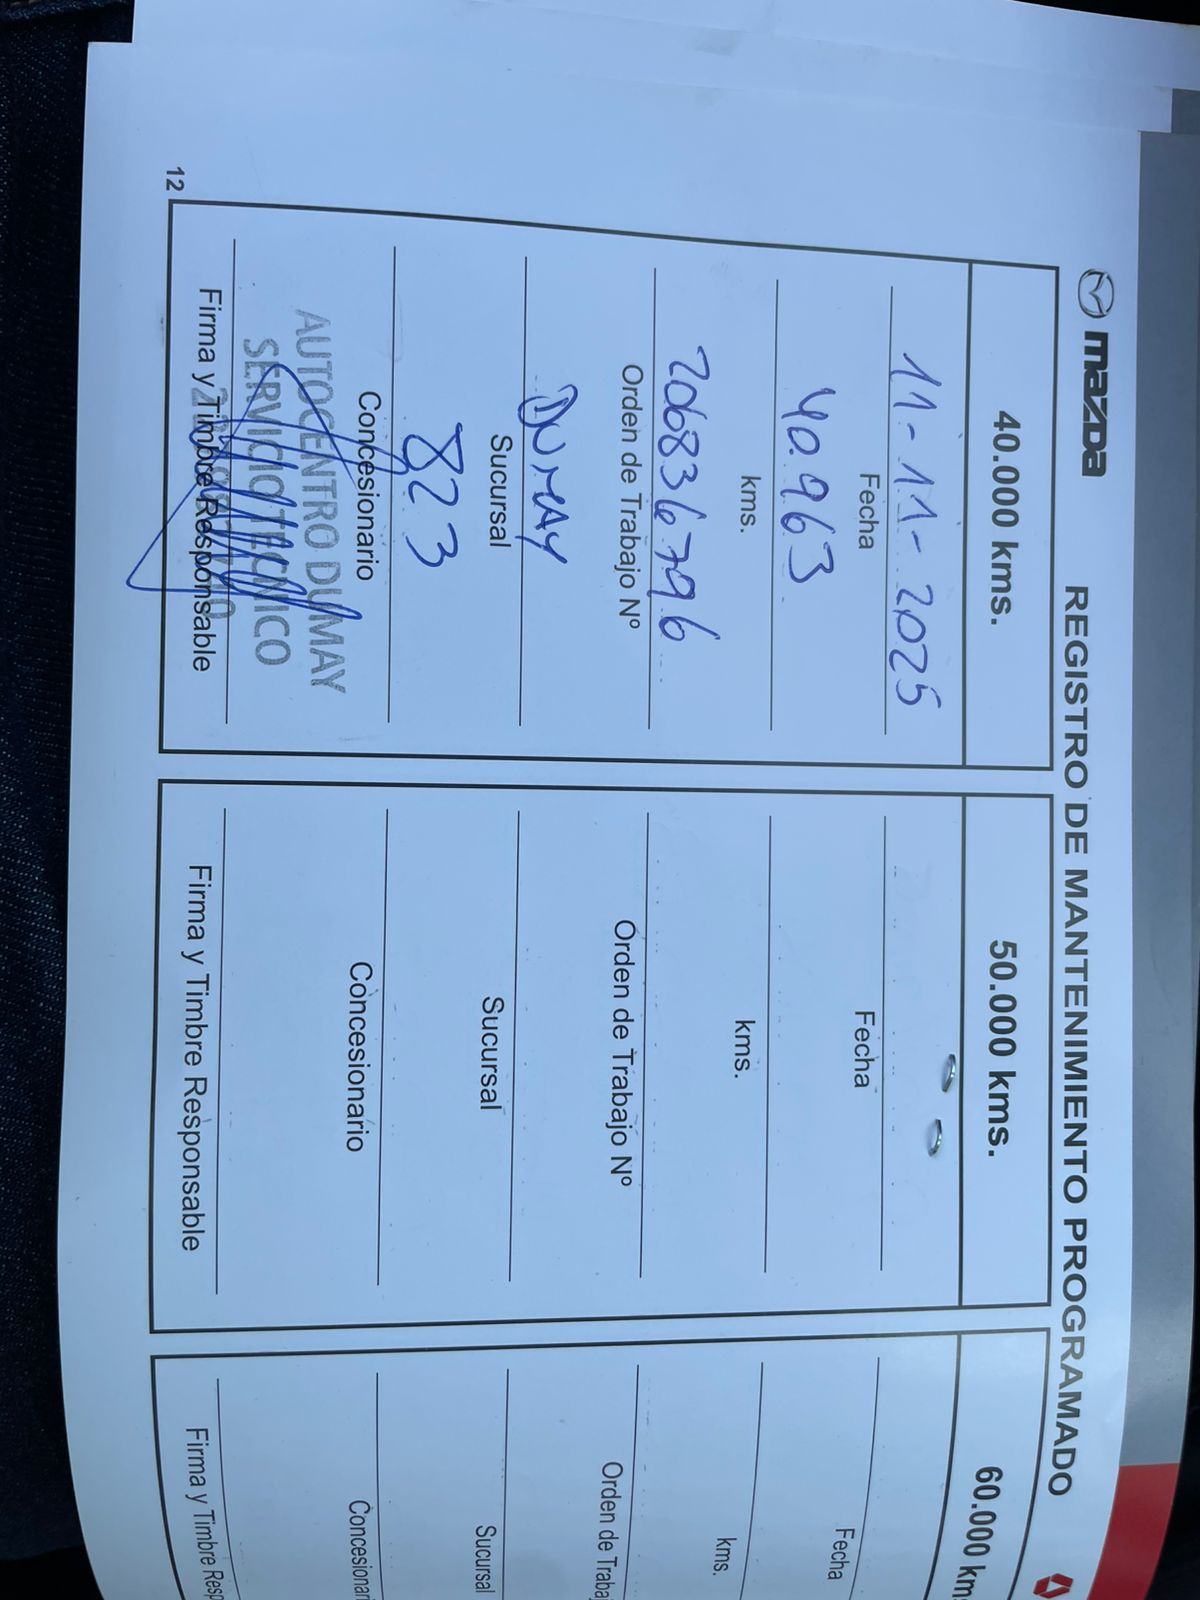 mazda
REGISTRO DE MANTENIMIENTO PROGRAMADO
40.000 kms.
11-11-2025
Fecha
40.963
kms.
2068336796
Orden de Trabajo Nº
DUMAY
Sucursal
823
Concesionario
AUTOCENTRO DUMAY
SERVICIO TECNICO
Firma y Timbre Responsable
50.000 kms.
Fecha
kms.
Orden de Trabajo Nº
Sucursal
Concesionario
Firma y Timbre Responsable
60.000 km
Fecha
kms.
Orden de Traba
Sucursal
Concesionar
Firma y Timbre Resp
12